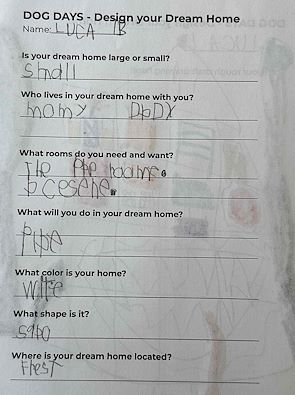 DOG DAYS - Design your Dream Home
Name: LUCA B
Is your dream home large or small?
Small
Who lives in your dream home with you?
momy DaDY
What rooms do you need and want?
The
What will you do in your dream home?
What color is your home?
Wite
What shape is it?
Where is your dream home located?